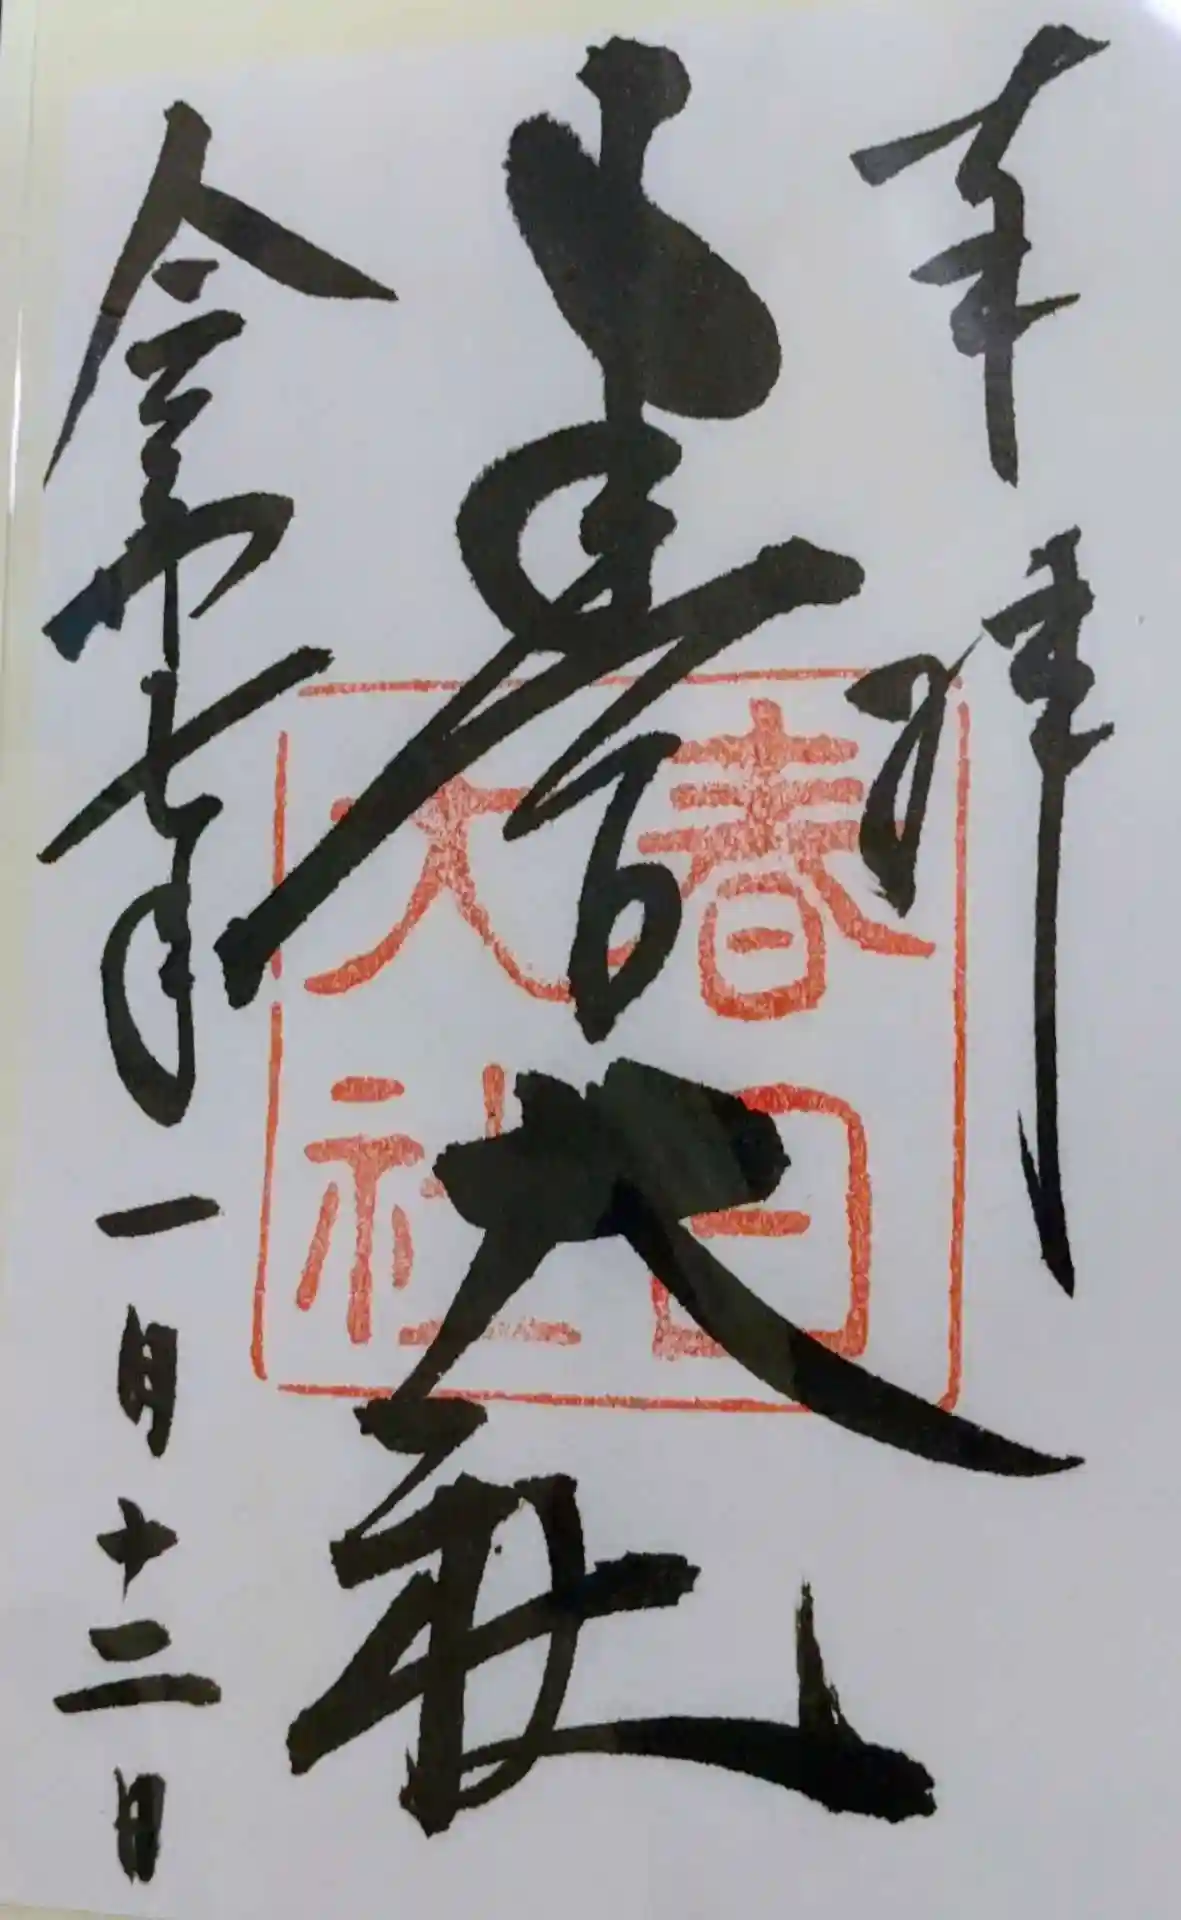 奉拝
春日大社
令和七年一月十二日
春日
大社